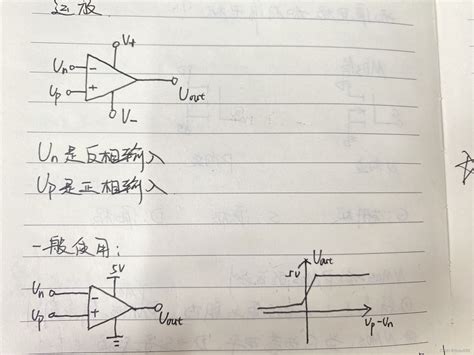 运放.
V+
Un
-
Up
+
Uout
V-
Un是反相输入
Up是正相输入
一般使用:
5V
Un
-
Up
+
Uout
Uout
5V
Up-Un